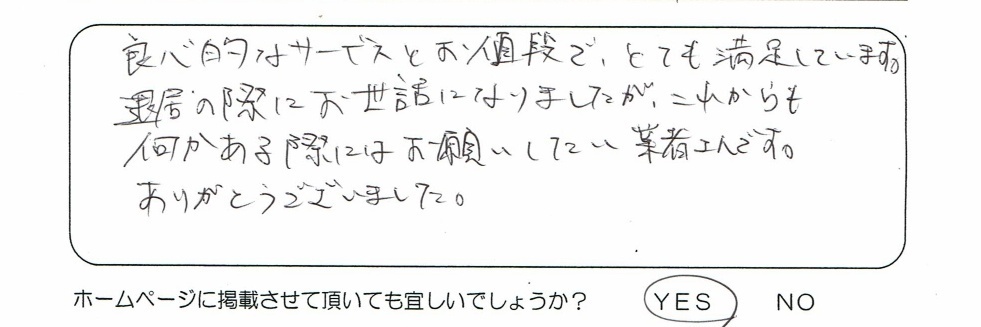 良心的なサービスとお値段で、とても満足しています。
退居の際にお世話になりましたが、これからも
何かある際にはお願いしたい業者さんです。
ありがとうございました。
ホームページに掲載させて頂いても宜しいでしょうか? YES NO